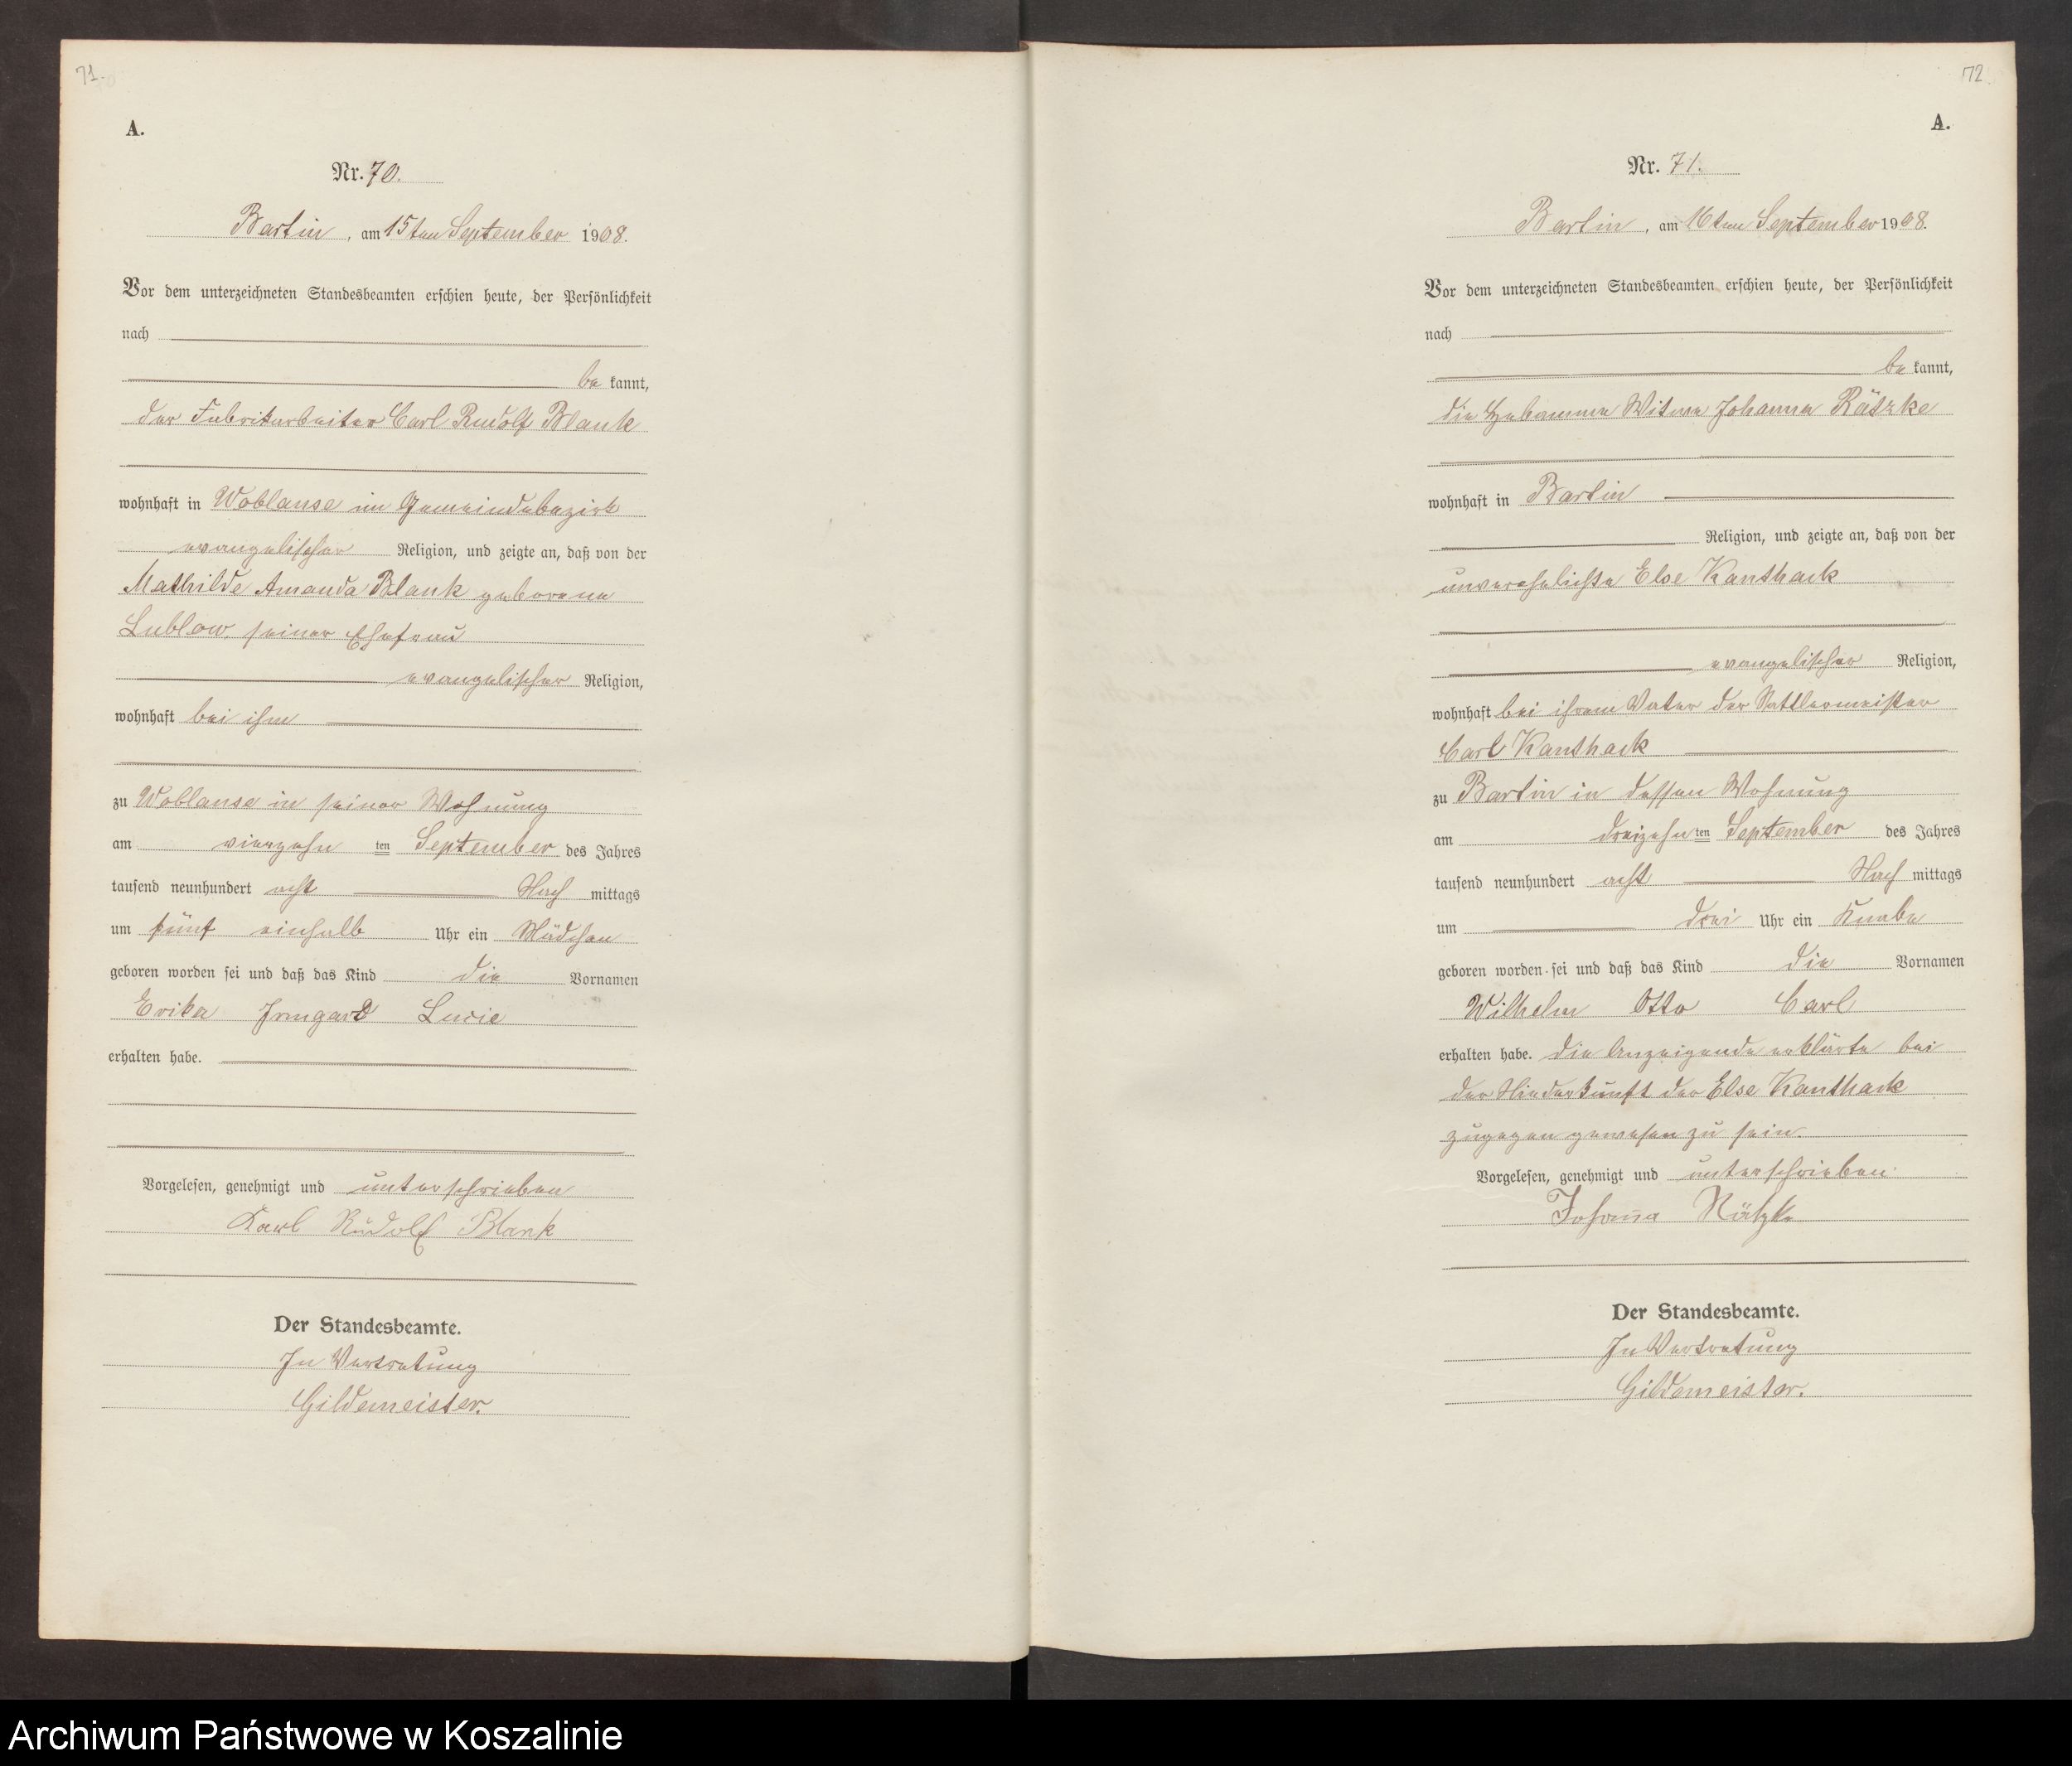 71.
A.
Nr. 70.
Bartin, am 15ten September 1908.
Vor dem unterzeichneten Standesbeamten erschien heute, der Persönlichkeit
nach
be kannt,
der Fabrikarbeiter Carl Rudolf Blank
wohnhaft in Woblanse im Gemeindebezirk
evangelischer Religion, und zeigte an, daß von der
Mathilde Amanda Blank geborene
Lublow, seiner Ehefrau
evangelischer Religion,
wohnhaft bei ihm
zu Woblanse in seiner Wohnung
am vierzehn ten September des Jahres
tausend neunhundert acht Nach mittags
um fünf einhalb Uhr ein Mädchen
geboren worden sei und daß das Kind die Vornamen
Erika Irmgard Lucie
erhalten habe.
Vorgelesen, genehmigt und unterschrieben
Karl Rudolf Blank
Der Standesbeamte.
In Vertretung
Gildemeister.
72
A.
Nr. 71.
Bartin, am 16ten September 1908.
Vor dem unterzeichneten Standesbeamten erschien heute, der Persönlichkeit
nach
be kannt,
die Hebamme Witwe Johanna Rätzke
wohnhaft in Bartin
Religion, und zeigte an, daß von der
unverehelichte Else Kanthack
evangelischer Religion,
wohnhaft bei ihrem Vater der Sattlermeister
Carl Kanthack
zu Bartin in dessen Wohnung
am dreizehn ten September des Jahres
tausend neunhundert acht Nach mittags
um drei Uhr ein Knabe
geboren worden sei und daß das Kind die Vornamen
Wilhelm Otto Carl
erhalten habe. Die Anzeigende erklärte bei
der Niederkunft der Else Kanthack
zugegen gewesen zu sein.
Vorgelesen, genehmigt und unterschrieben
Johanna Rätzke
Der Standesbeamte.
In Vertretung
Gildemeister.
Archiwum Państwowe w Koszalinie